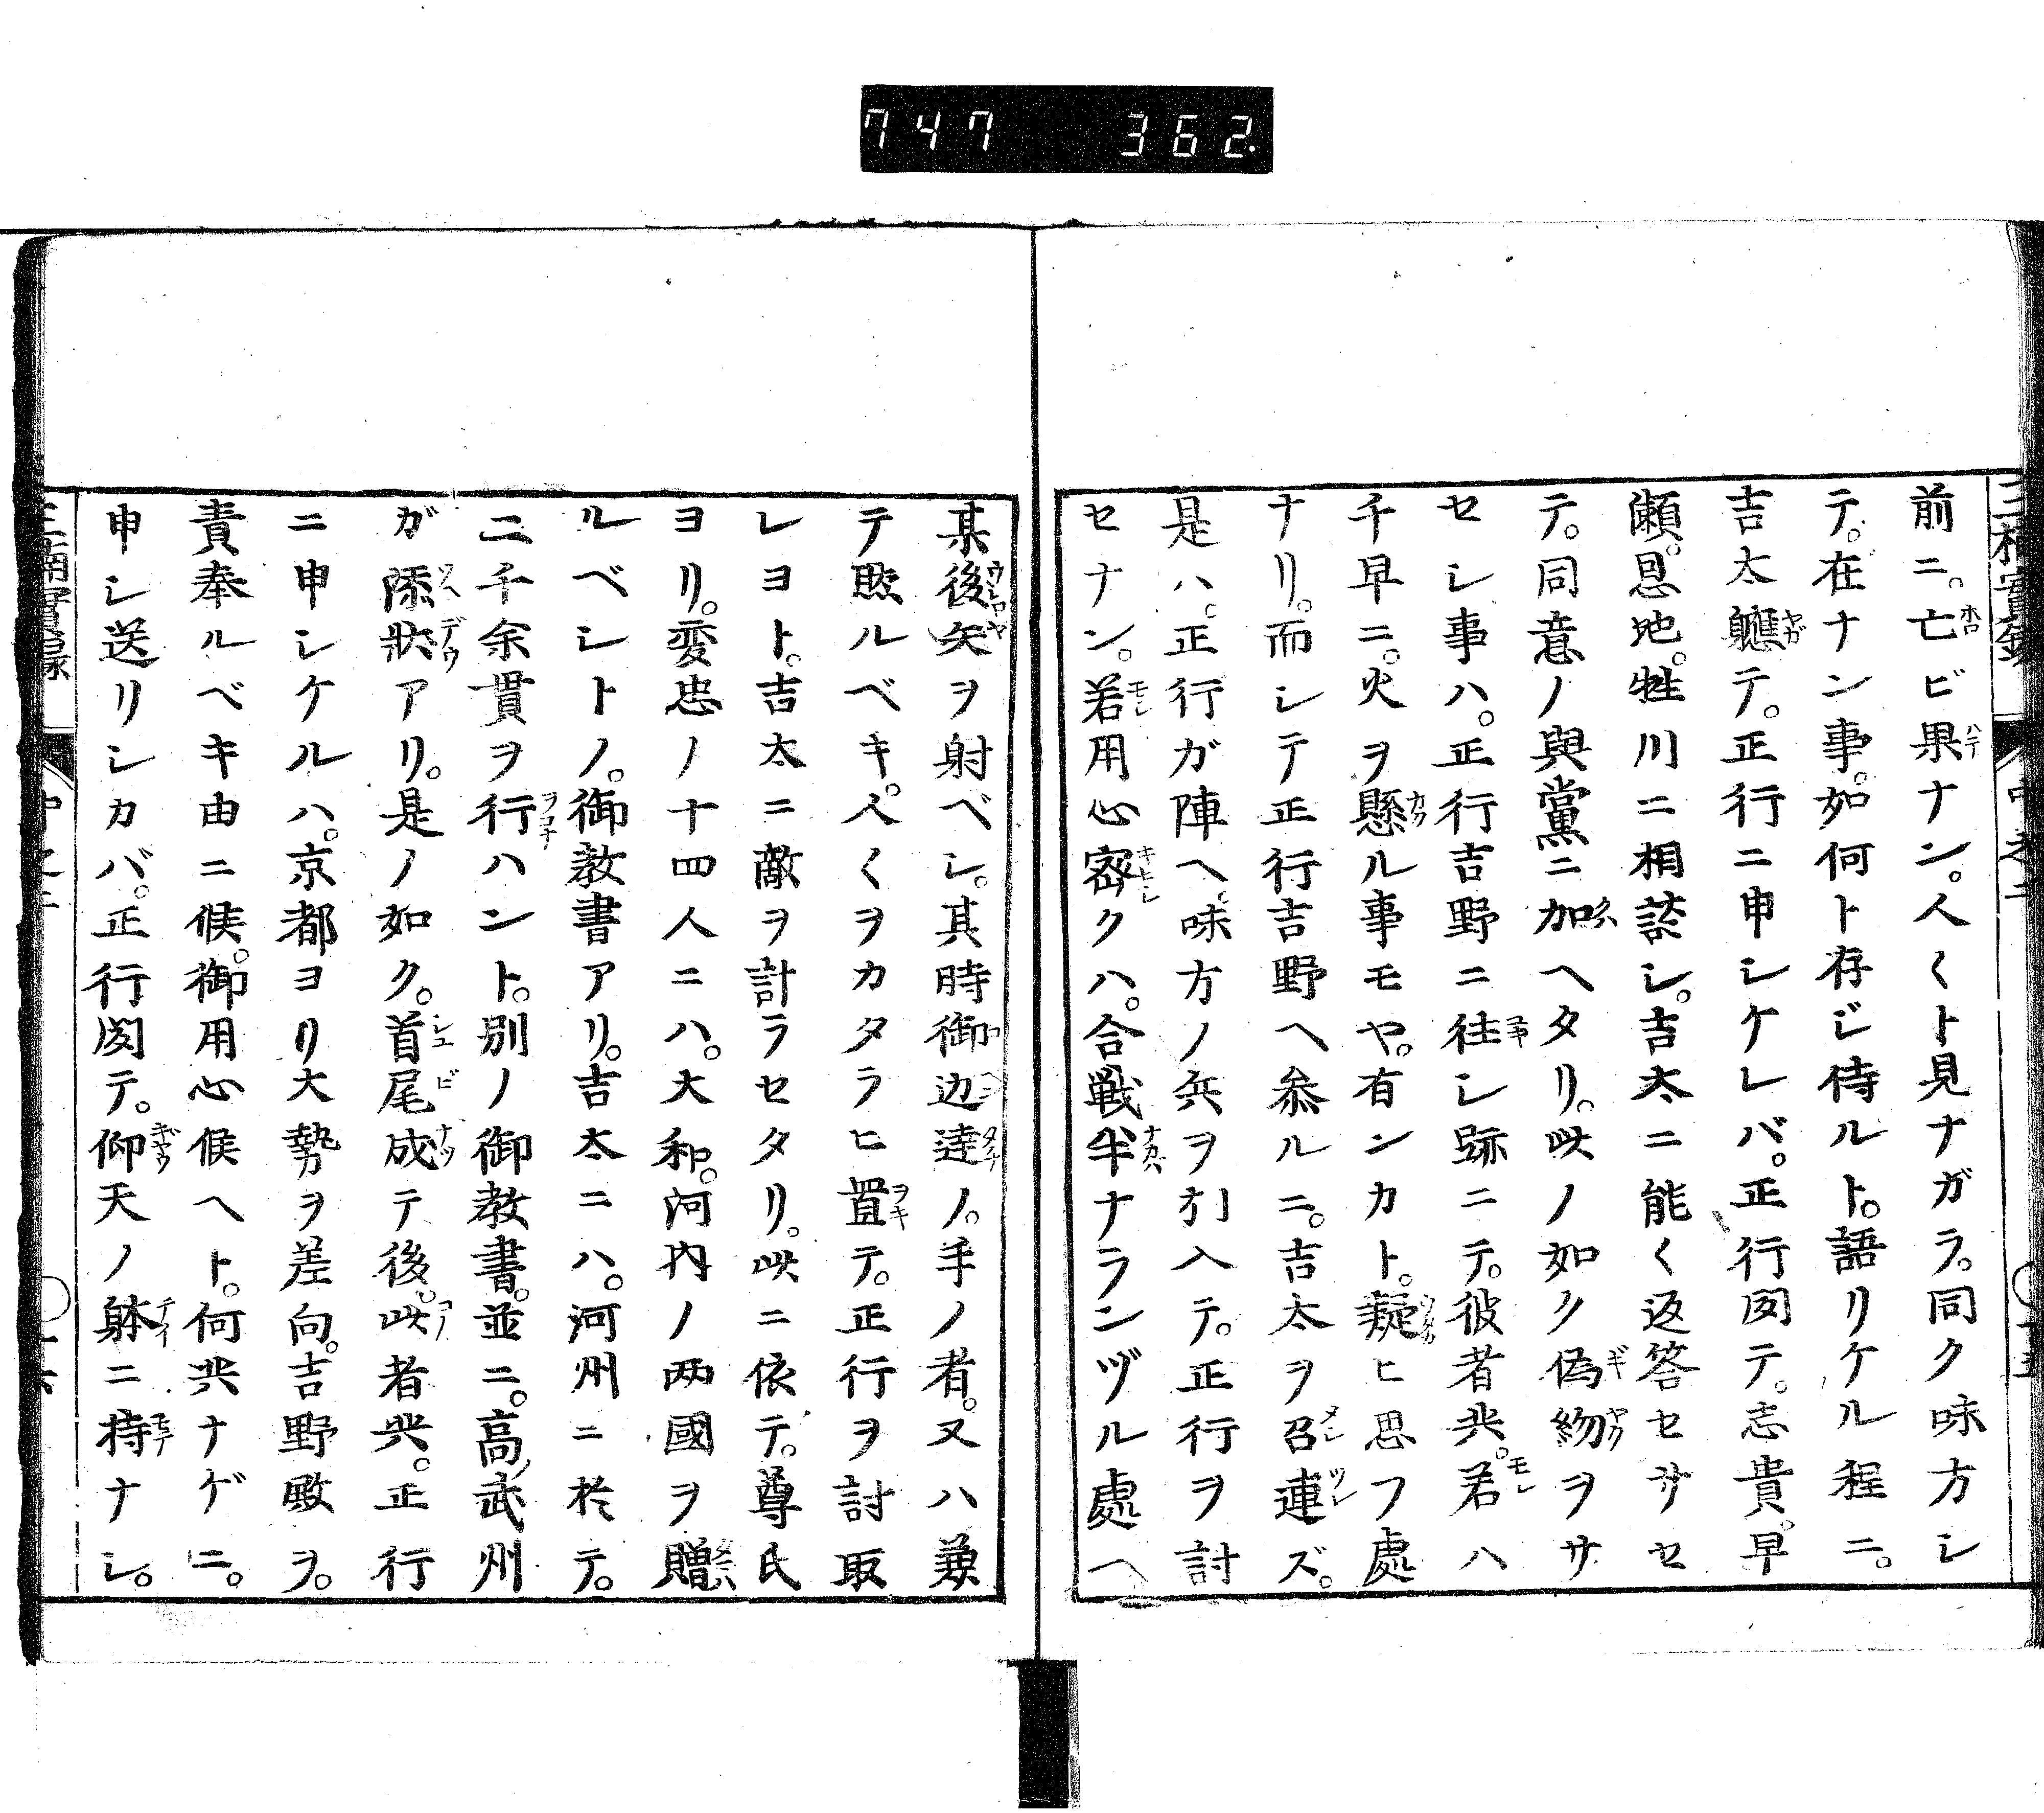 747 362.
前ニ。亡ビ果ナン。人〱ト見ナガラ。同ク味方シ
テ。在ナン事。如何ト存ジ侍ルト。語リケル程ニ。
吉太軈テ。正行ニ申シケレバ。正行聞テ。志貴。早
瀬。恩地。牲川ニ相談シ。吉太ニ能ク返答セサセ
テ。同意ノ與黨ニ加ヘタリ。此ノ如ク偽約ヲサ
セシ事ハ。正行吉野ニ徃シ跡ニテ。彼者共。若ハ
千早ニ。火ヲ懸ル事モヤ。有ンカト。疑ヒ思フ處
ナリ。而シテ正行吉野ヘ参ルニ。吉太ヲ召連ズ。
是ハ。正行ガ陣ヘ。味方ノ兵ヲ引入テ。正行ヲ討
セナン。若用心密クハ。合戦半ナランヅル處ヘ
某後矢ヲ射ベシ。其時御辺達ノ。手ノ者。又ハ兼
テ㷔ルベキ。人〱ヲカタラヒ置テ。正行ヲ討取
レヨト。吉太ニ敵ヲ計ラセタリ。此ニ依テ。尊氏
ヨリ。変忠ノ十四人ニハ。大和。河内ノ両國ヲ贈
ルベシトノ。御教書アリ。吉太ニハ。河州ニ於テ。
二千余貫ヲ行ハント。別ノ御教書。並ニ。高武州
ガ添狀アリ。是ノ如ク。首尾成テ後。此者共。正行
ニ申シケルハ。京都ヨリ大勢ヲ差向。吉野殿ヲ。
責奉ルベキ由ニ候。御用心候ヘト。何共ナゲニ。
申シ送リシカバ。正行聞テ。仰天ノ躰ニ持ナシ。